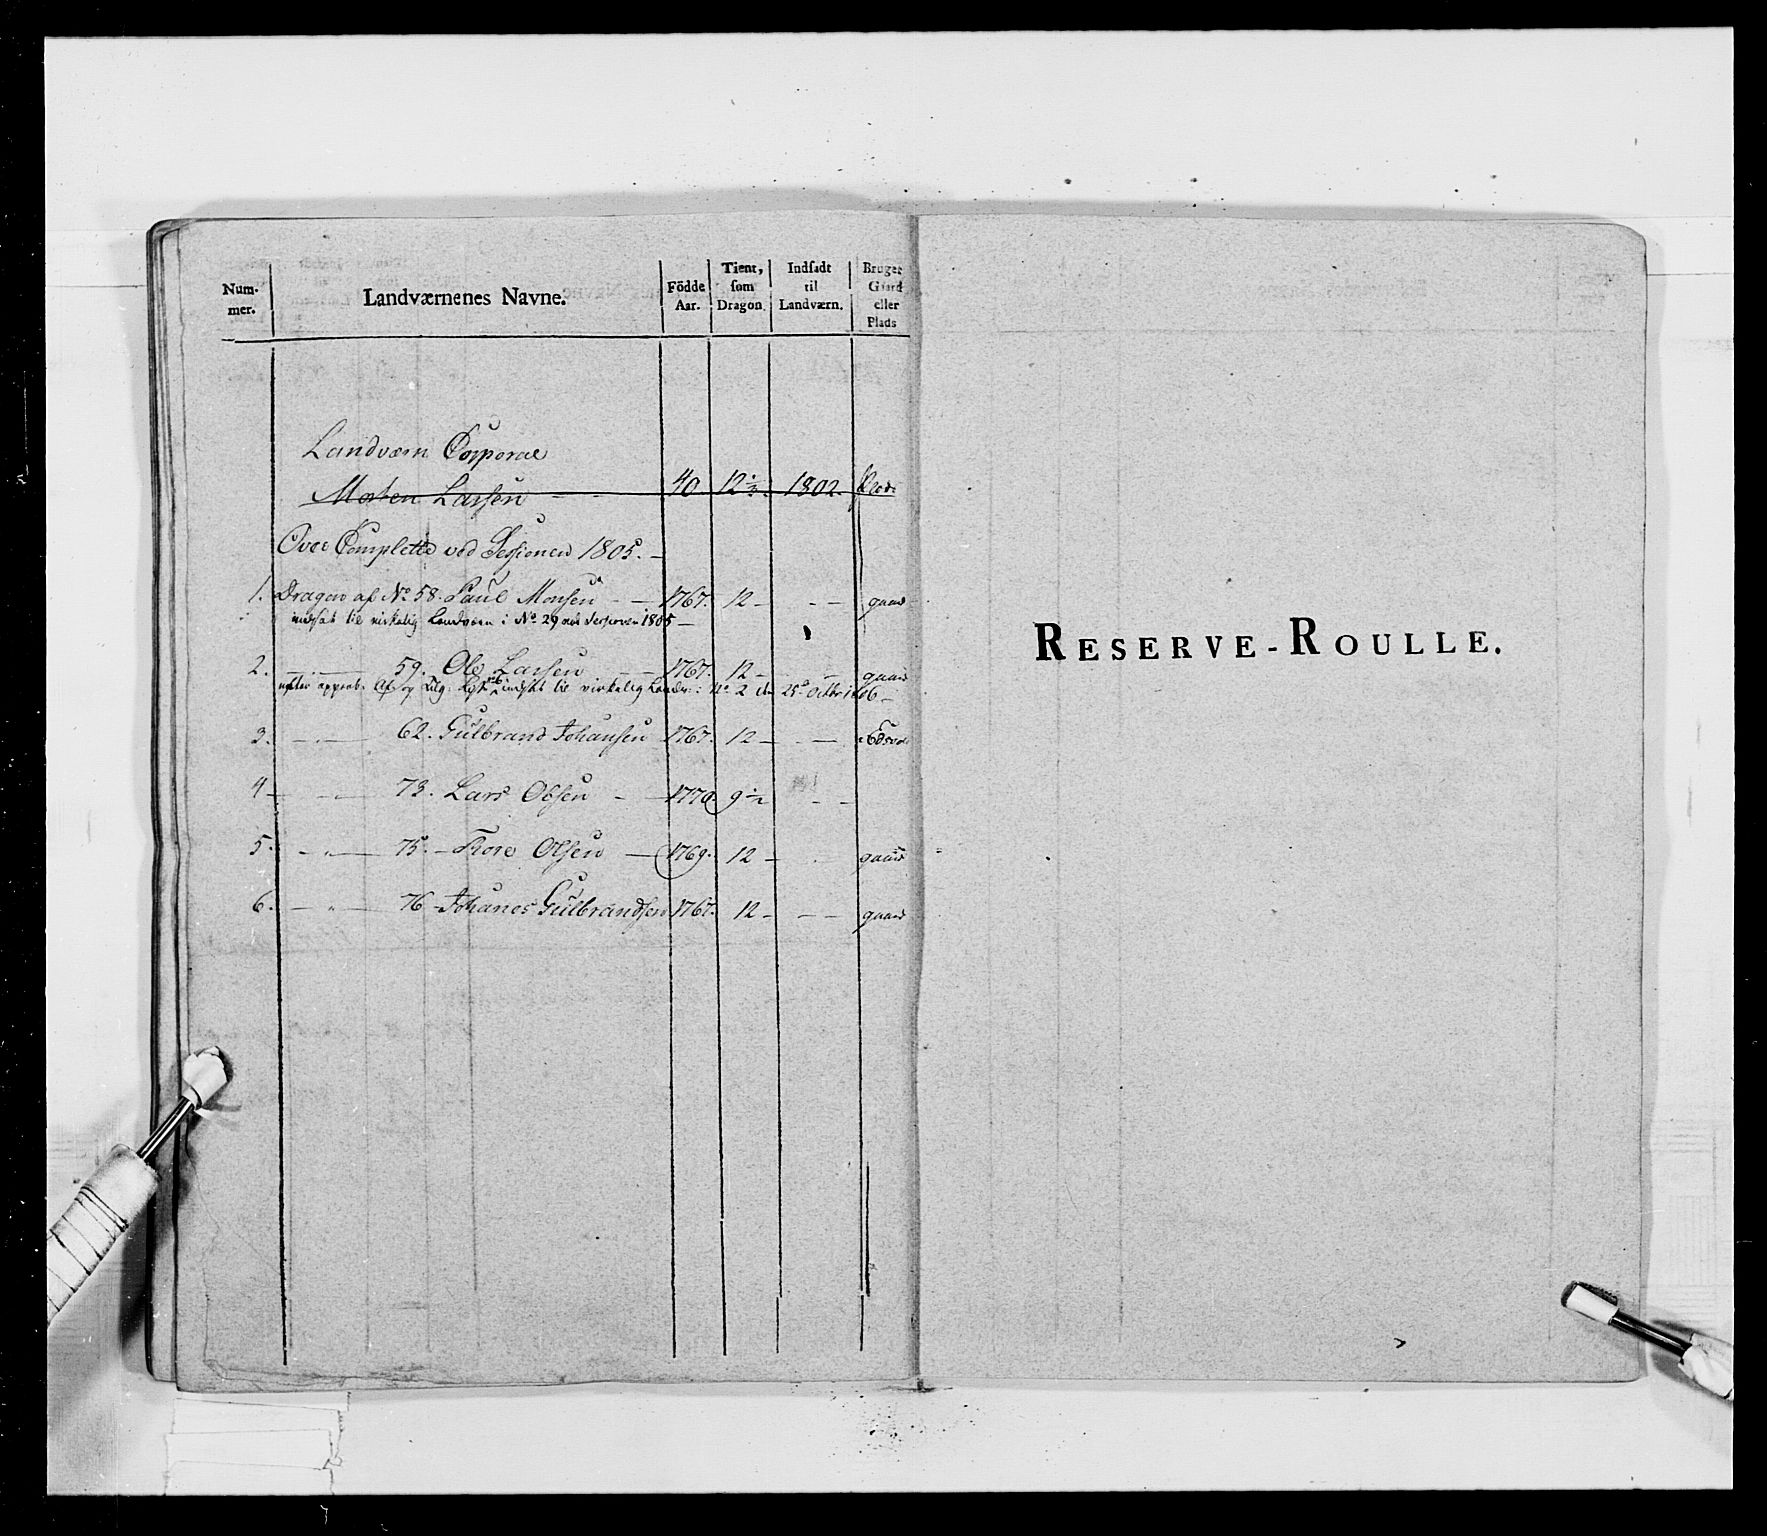 Num- mer. Landværnenes Navne. Födde Aar. Tient, som Dragon. Indsadt til Landværn. Bruger Gaard eller Plads
Landværn Corporal
Morten Larsen - - 40. 12 1/2. 1802. Plads
Over Complette ved Sessionen 1805. -
1. Dragon af No 58. Paul Monsen - - 1767. 12 - - - gaard
indsat til virkelig Landværn i No 29 ved Sessionen 1805 -
2. - " - 59. Ole Larsen - - 1767. 12 - - gaard
efter approb: indsat til virkelig Landv: i No 2 den 25de Octbr 1806 -
3. - " - 62. Gulbrand Johansen - 1767. 12 - - -
4 - - " - 73. Lars Olsen - - 1770. 9 1/2 - -
5. - " - 75. - Tore Olsen - 1769. 12 - - gaard
6. - " - 76 - Johanes Gulbrandsen 1767. 12 - - - gaard
RESERVE-ROULLE.